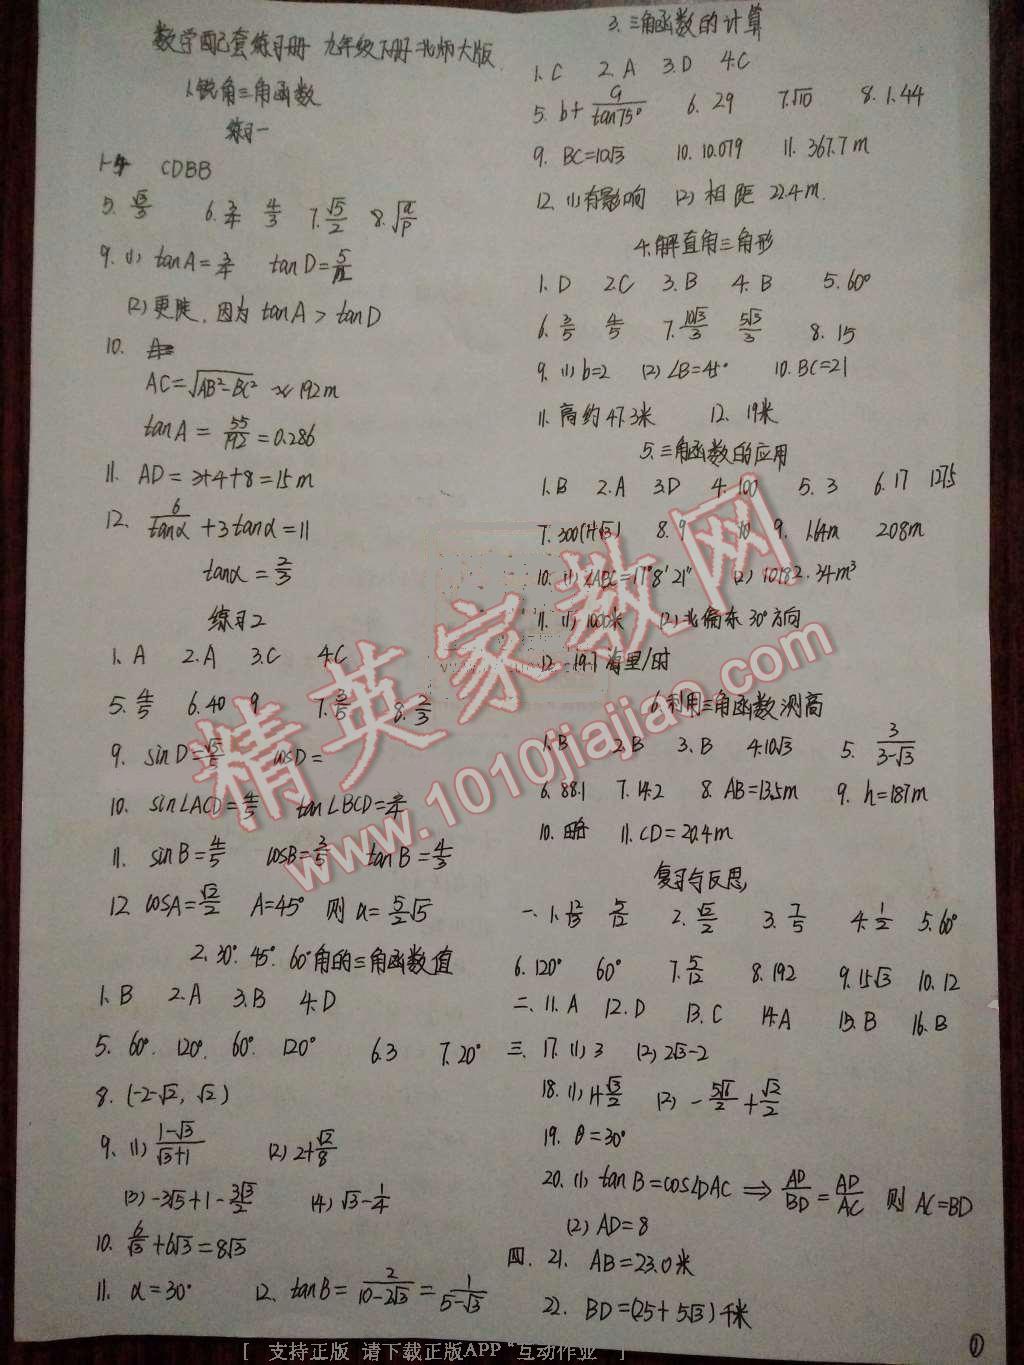 数学配套练习册 九年级下册 北师大版
1.锐角三角函数
练习一
1-4 CDBB
5. √5/3 6. 3/4 4/3 7. √5/2 8.
9. (1) tanA=3/4 tanD=5/12
(2)更陡,因为 tanA > tanD
10.
AC=√(AB²-BC²) ≈192m
tanA = 55/192 =0.286
11. AD=3+4+8=15m
12. 6/tanα +3tanα=11
tanα=2/3
练习2
1. A 2.A 3.C 4.C
5. 4/5 6.40 9 7. 3/5 8. 2/3
9. sinD= cosD=
10. sin∠ACD=4/5 tan∠BCD=3/4
11. sinB=4/5 cosB=3/5 tanB=4/3
12. cosA=√2/2 A=45° 则 a=5/2√5
2. 30°. 45°. 60°角的三角函数值
1. B 2.A 3.B 4.D
5. 60°. 120°. 60°. 120° 6.3 7.20°
8. (-2-√2, √2)
9. (1) (1-√3)/(√3+1) (2) 2+√2/8
(3) -3√5+1-3√3/2 (4) √3-1/4
10. 6/√3+6√3=8√3
11. α=30° 12. tanB= 2/(10-2√3) = 1/(5-√3)
3. 三角函数的计算
1. C 2. A 3.D 4.C
5. b+ a/tan75° 6. 29 7.√10 8. 1.44
9. BC=10√3 10. 10.079 11. 367.7m
12. (1)有影响 (2) 相距 22.4m.
4.解直角三角形
1. D 2.C 3. B 4. B 5. 60°
6. 3/5 4/5 7. 10√3/3 5√3/3 8. 15
9. (1) b=2 (2) ∠B=45° 10. BC=21
11. 高约47.3米 12. 19米
5.三角函数的应用
1.B 2.A 3.D 4.100 5. 3 6. 17 127.5
7. 300(1+√3) 8. 9 9. 1.64m 208m
10. (1) ∠ABC=17°8′21″ (2) 10182.34m³
11. (1) 1000米 (2)北偏东30°方向
12. 19.1海里/时
6.利用三角函数测高
1.B 2.B 3. B 4.10√3 5. 3/(3-√3)
6. 88.1 7. 14.2 8. AB=13.5m 9. h=187m
10. 略 11. CD=20.4m
复习与反思
一. 1. 12/13 5/12 2. √2/2 3. 7/5 4. 1/2 5. 60°
6. 120° 60° 7. 5/12 8. 192 9. 15√3 10. 12
二. 11. A 12. D 13. C 14.A 15. B 16. B
三. 17. (1) 3 (2) 2√3-2
18. (1) 1+√3/2 (2) -5√6/2+√2/2
19. θ=30°
20. (1) tanB=cos∠DAC ⇒ AD/BD=AD/AC 则 AC=BD
(2) AD=8
四. 21. AB=23.0米
22. BD=(25+5√3)千米
①
精英家教网
www.1010jiajiao.com
[ 支持正版 请下载正版APP“互动作业” ]